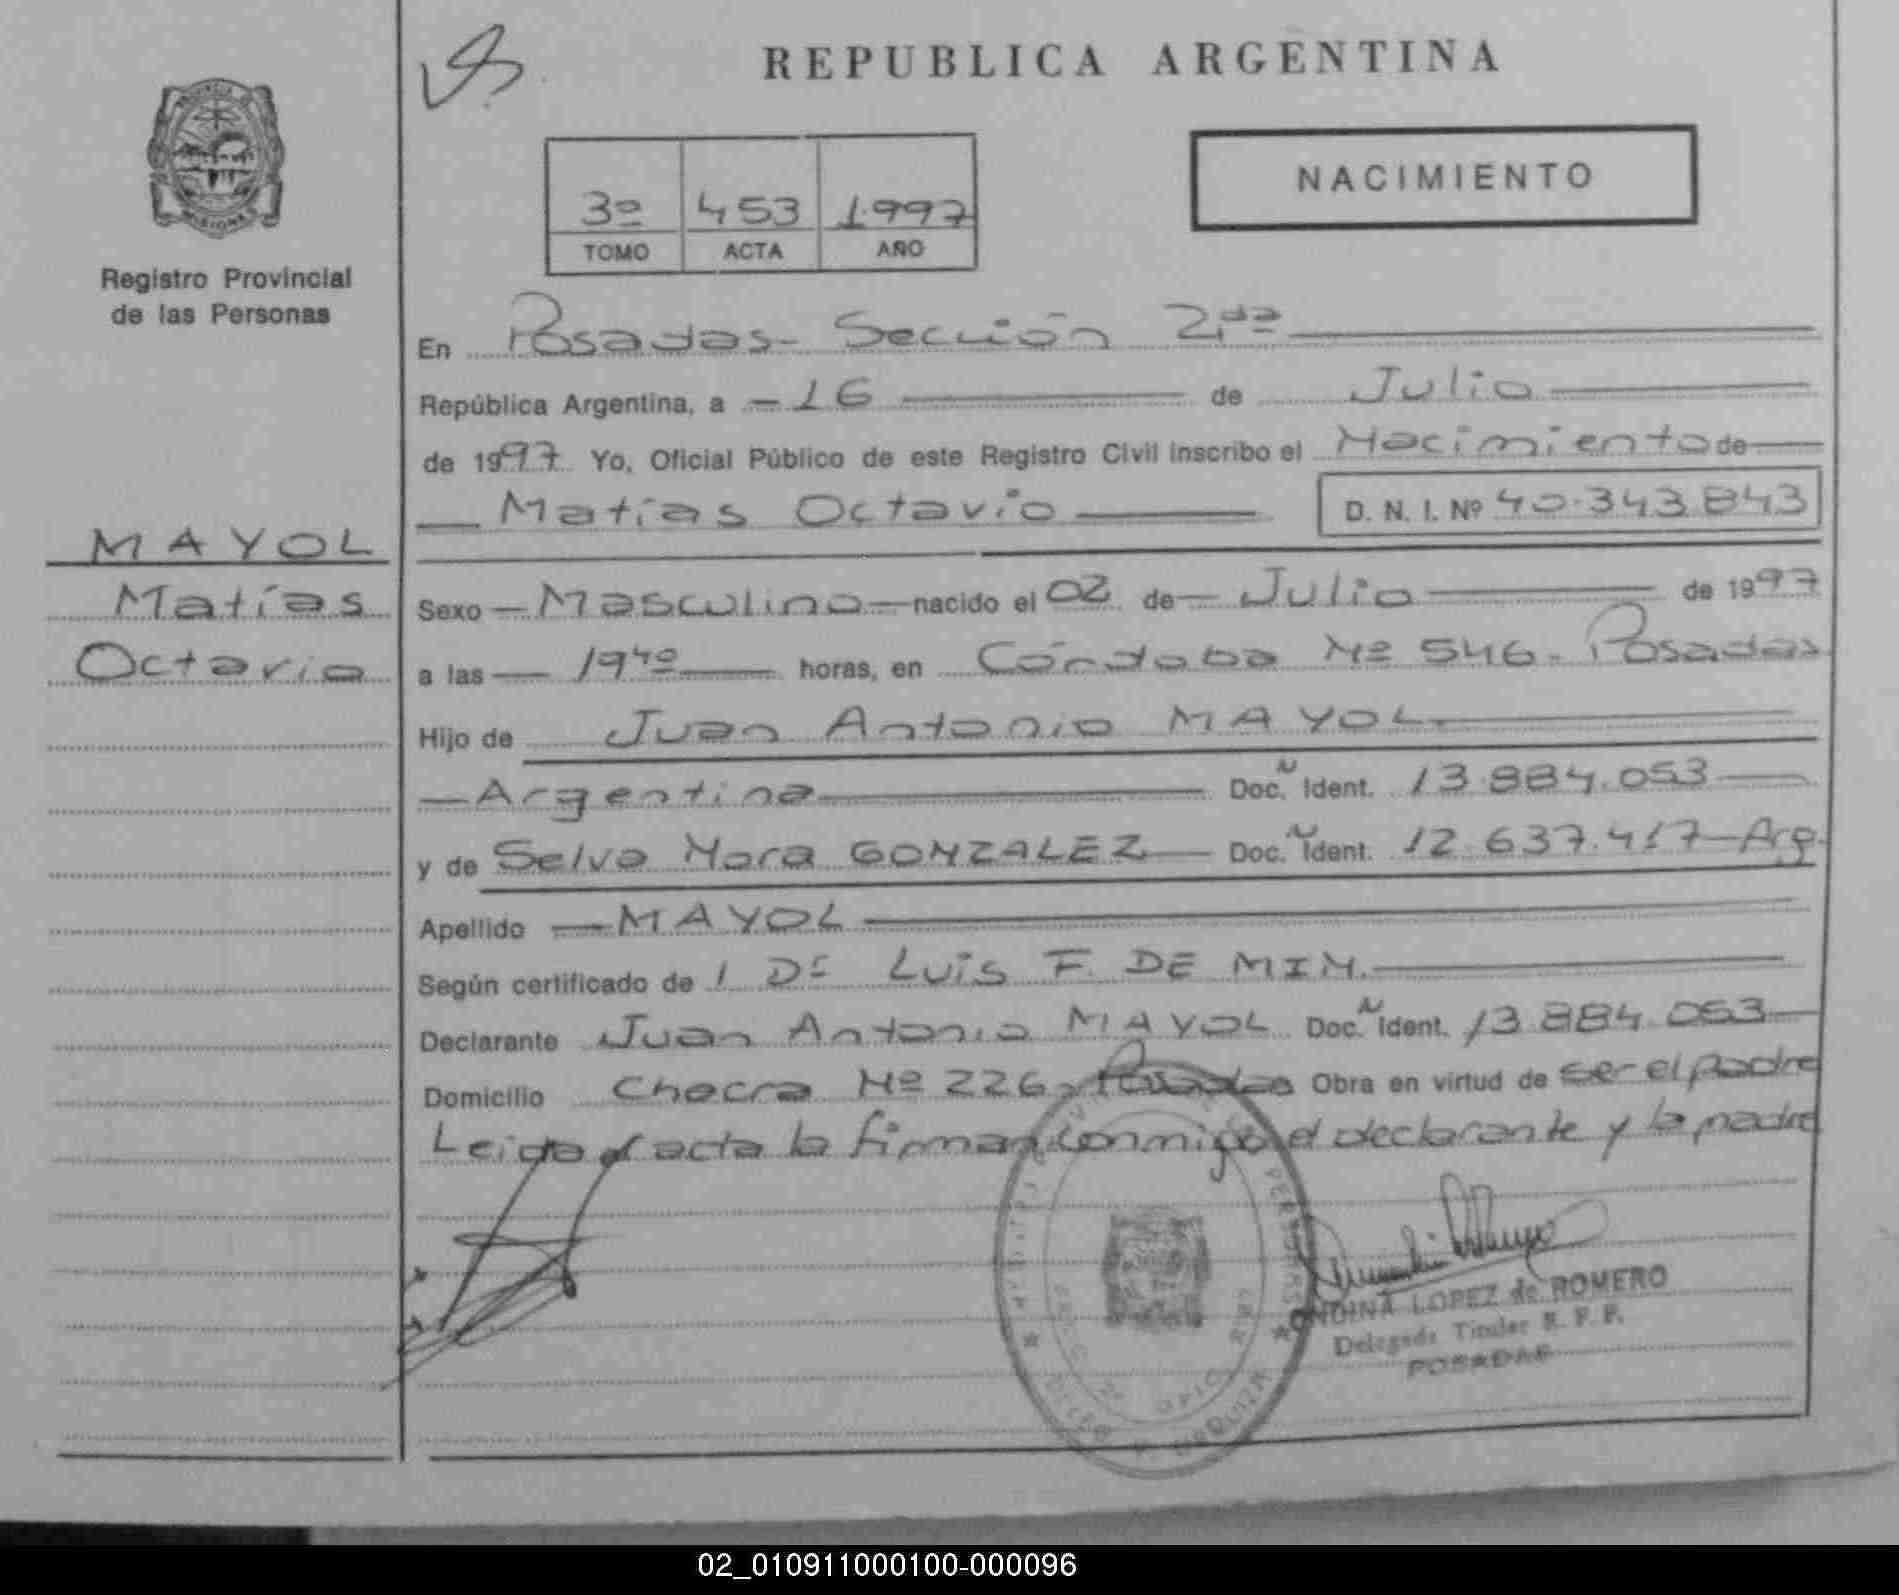 REPUBLICA ARGENTINA
NACIMIENTO
3º 453 1997
TOMO ACTA AÑO
Registro Provincial
de las Personas
MAYOL
Matías
Octavio
En Posadas - Sección 2da
República Argentina, a - 16 de Julio
de 1997 Yo, Oficial Público de este Registro Civil inscribo el Nacimiento de
Matías Octavio D. N. I. Nº 40.343.843
Sexo - Masculino - nacido el 02 de Julio de 1997
a las 19 40 horas, en Córdoba Nº 546 - Posadas
Hijo de Juan Antonio MAYOL
Argentina Doc. N Ident. 13.884.053
y de Selva Nora GONZALEZ Doc. N Ident. 12.637.417 - Arg.
Apellido MAYOL
Según certificado de 1 Dr Luis F. DE MIN.
Declarante Juan Antonio MAYOL Doc. N Ident. 13.884.053
Domicilio Chacra Nº 226, Posadas Obra en virtud de ser el padre
Leida el acta la firman conmigo el declarante y la madre
ONDINA LOPEZ de ROMERO
Delegada Titular R. P. P.
POSADAS
02_010911000100-000096